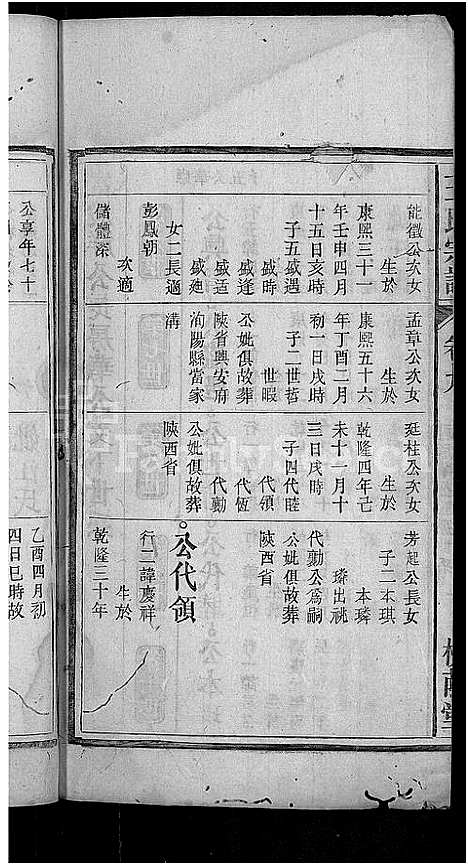 能徵公次女
生於
康熙三十一
年壬申四月
十五日亥時
子五盛遇
盛時
盛逢
盛适
盛迪
女二長適
彭鳳朝
次適
儲體深
孟章公次女
生於
康熙五十六
年丁酉二月
初一日戌時
子二世哲
世暇
公妣俱故葬
陝省興安府
洵陽縣當家
溝
廷桂公次女
生於
乾隆四年己
未十一月十
三日戌時
子四代睦
代領
代恆
代勳
公妣俱故葬
陝西省
芳起公長女
子二本琪
本璘
璘出祧
代勳公爲嗣
公妣俱故葬
陝西省
公代領
行二諱慶祥
生於
乾隆三十年
公享年七十
乙酉四月初
四日巳時故
氏宗譜
卷九